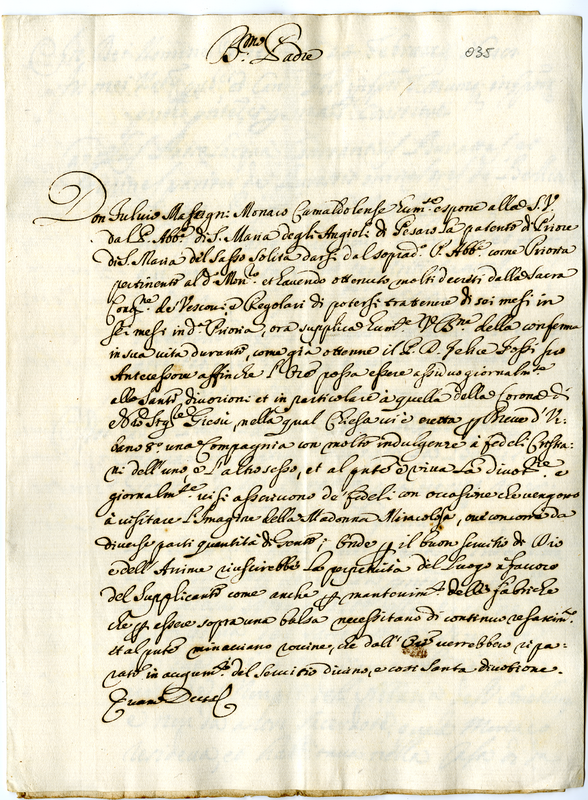 B.mo Padre
035
Don Fulvio Masegni Monaco Camaldolense hum.te espone alla S.V.
dal P. Abb.e di S. Maria degli Angioli di Pesaro la patente di Priore
di S. Maria del Sasso solita darsi dal soprad.o P. Abb.e come Prioria
pertinente al d.o Mon.ro et havendo ottenuto molti decreti dalla Sacra
Cong.ne de Vescovi e Regolari di potersi trattenere di sei mesi in
sei mesi in d.a Prioria, ora supplica hum.te V. B.ne della conferma
in sua vita durante, come già ottenne il P. D. Felice suo
Antecessore affinche possa essere assiduo giornalm.te
alle Sante divotioni et in particolare à quella della Corona di
Giesù, nella qual Chiesa vi è eretta p Breve d'Ur
bano 8.o una Compagnia con molte indulgenze à fedeli Cristia
ni dell'uno e l'altro sesso, et al pnte è viva la divot.ne e
giornalm.te vi si ascrivono de fedeli con occasione che vengono
à visitare l'Imagine della Madonna Miracolosa, ove concorre da
diverse parti quantità di Gente; Onde p il buon servitio di Dio
e dell'Anime riuscirebbe la perpetuità del luogo à favore
del Supplicante come anche p mantenim.to delle fabriche
che p essere sopra una balsa necessitano di continuo resarcim.to
et al pnte minacciano rovine, che dall' verrebbero ripa
rate in augum.to del Servitio divino, e così Santa divotione.
Quam Deus